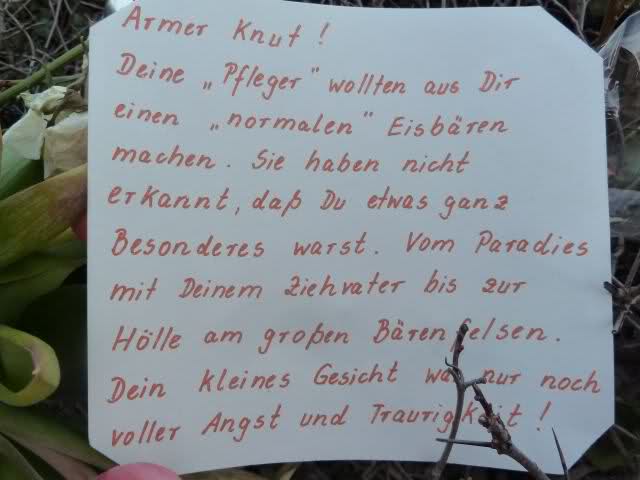 Armer Knut!
Deine „Pfleger" wollten aus Dir
einen „normalen" Eisbären
machen. Sie haben nicht
erkannt, daß Du etwas ganz
Besonderes warst. Vom Paradies
mit Deinem Ziehvater bis zur
Hölle am großen Bärenfelsen.
Dein kleines Gesicht war nur noch
voller Angst und Traurigkeit!